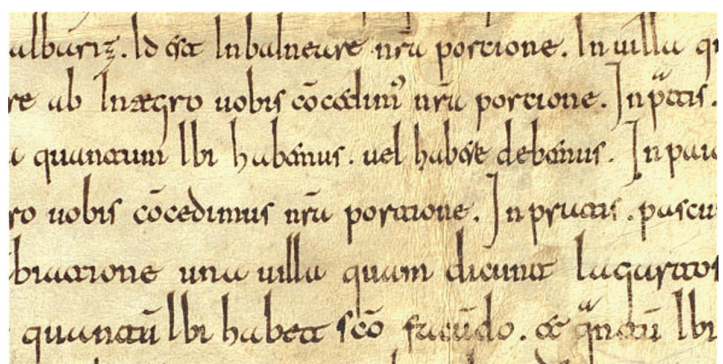 albariz. Id est In balneare nr̄a portione. In uilla
re ab Integro uobis cōcedim' nr̄a portione. In p̄atis.
quantum Ibi habemus. uel habere debemus. In
ro uobis cōcedimus nr̄a portione. In pratis. pascu
una uilla quam dicunt
quantū Ibi habet sc̄o facūdo. et q̄ntū Ibi